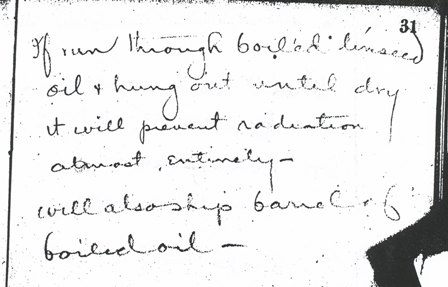 31
If run through boiled linseed
oil & hung out until dry
it will prevent radiation
almost entirely —
will also ship barrel of
boiled oil —